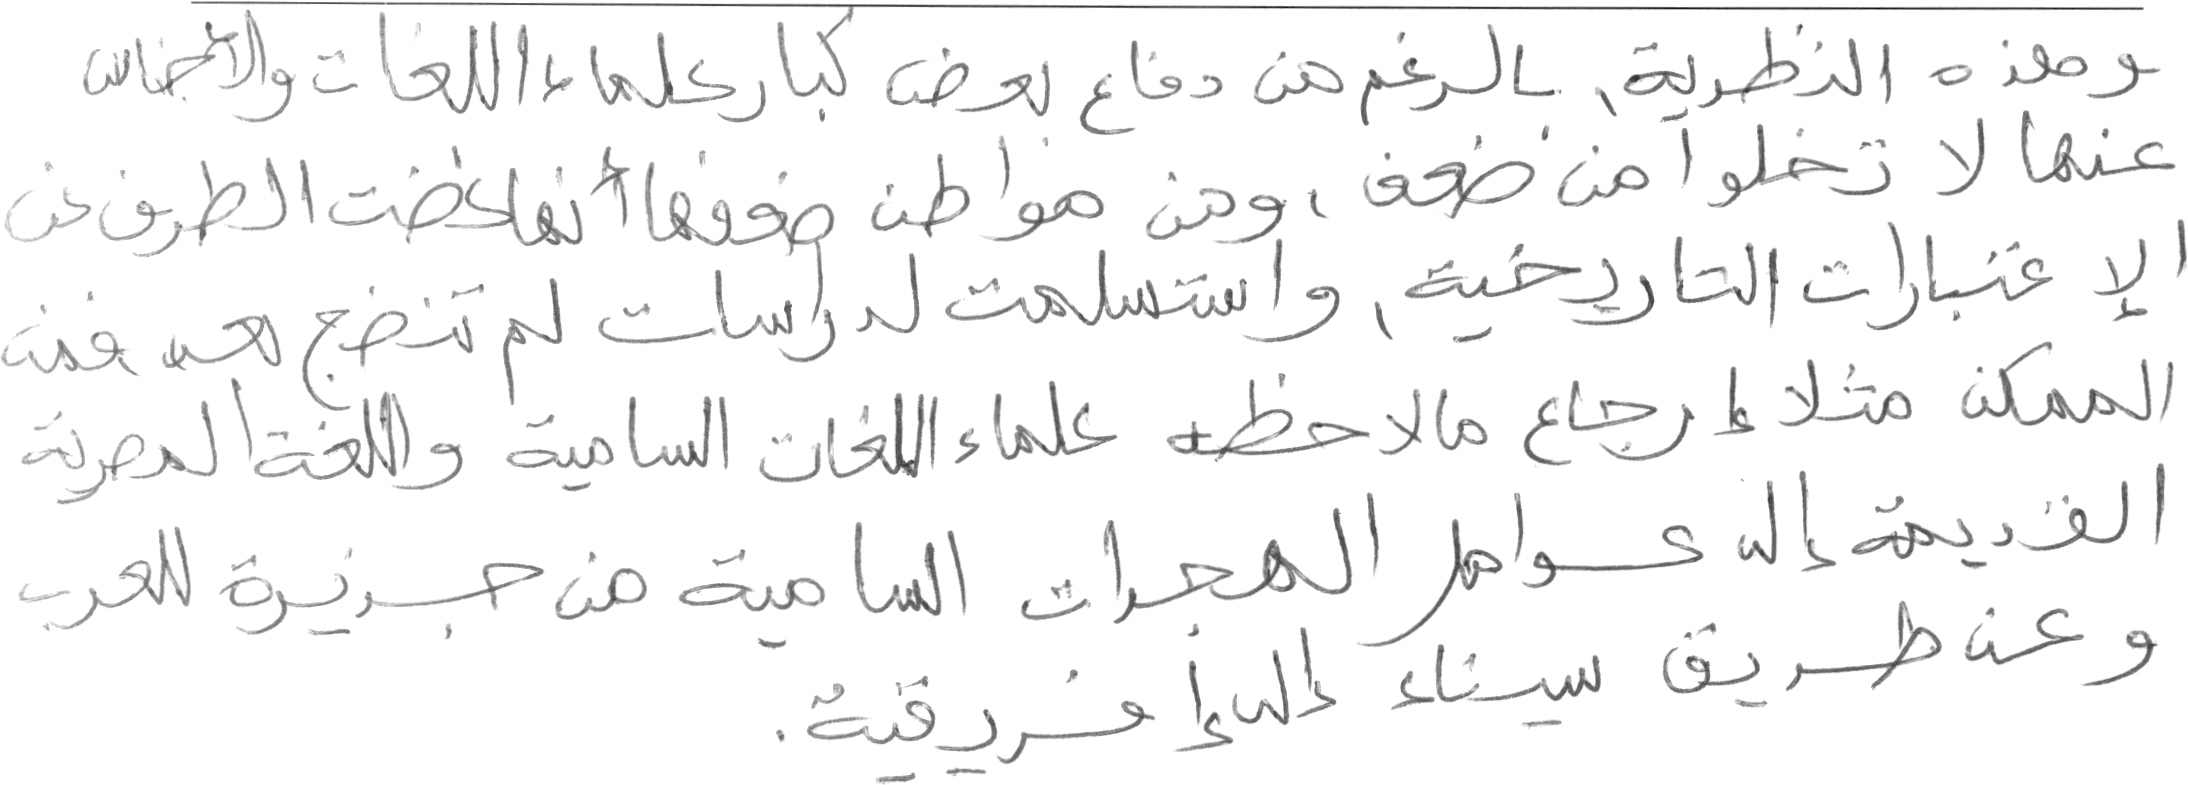 وهذه النظرية، بالرغم من دفاع بعض كبار علماء اللغات والأجناس
عنها لا تخلوا من ضعف، ومن مواطن ضعفها أنها غضت الطرف عن
الإعتبارات التاريخية، واستسلمت لدراسات لم تنضج بعد، فمن
الممكن مثلا إرجاع مالاحظه علماء اللغات السامية واللغة المصرية
القديمة إلى عوامل الهجرات السامية من جزيرة العرب
وعن طريق سيناء إلى إفريقية.